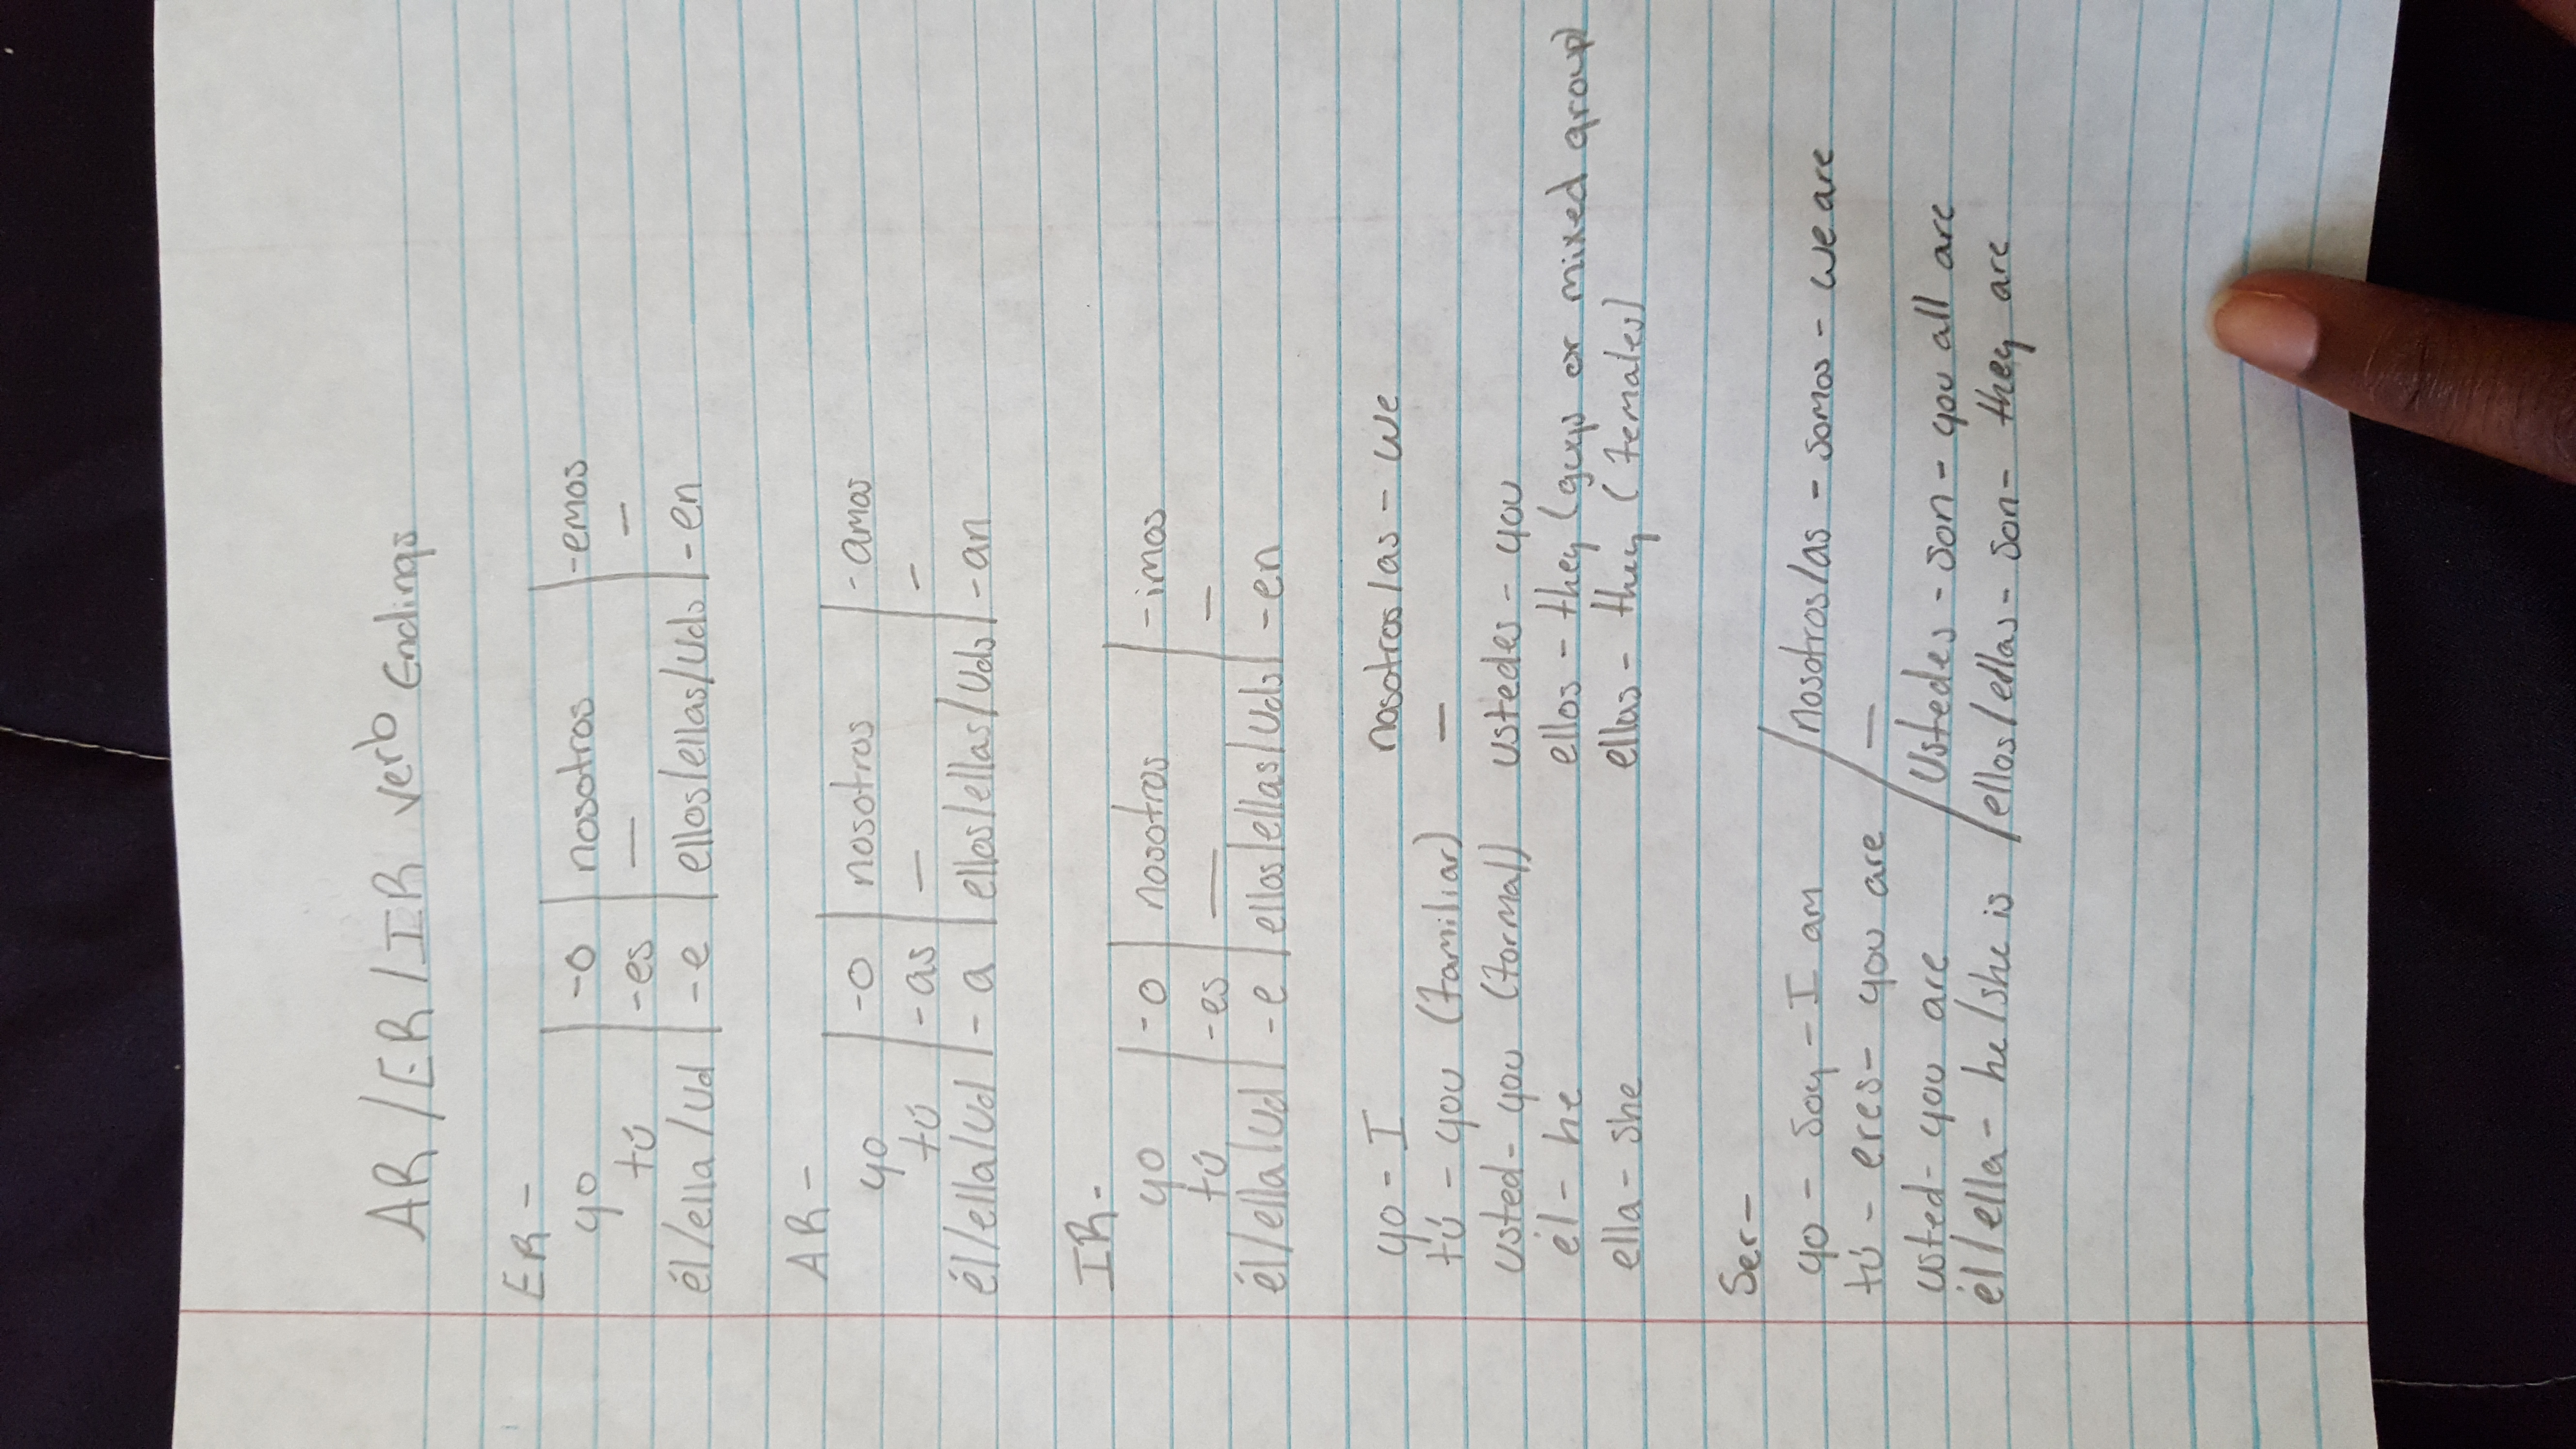 AR/ER/IR Verb Endings
ER-
yo | -o | nosotros | -emos
tú | -es | — | —
él/ella/Ud | -e | ellos/ellas/Uds | -en
AR-
yo | -o | nosotros | -amos
tú | -as | — | —
él/ella/Ud | -a | ellos/ellas/Uds | -an
IR-
yo | -o | nosotros | -imos
tú | -es | — | —
él/ella/Ud | -e | ellos/ellas/Uds | -en
yo - I nosotros/as - we
tú - you (familiar) —
usted - you (formal) ustedes - you
él - he ellos - they (guys or mixed group)
ella - she ellas - they (females)
Ser-
yo - soy - I am / nosotros/as - somos - we are
tú - eres - you are / —
usted - you are / Ustedes - son - you all are
él/ella - he/she is / ellos/ellas - son - they are